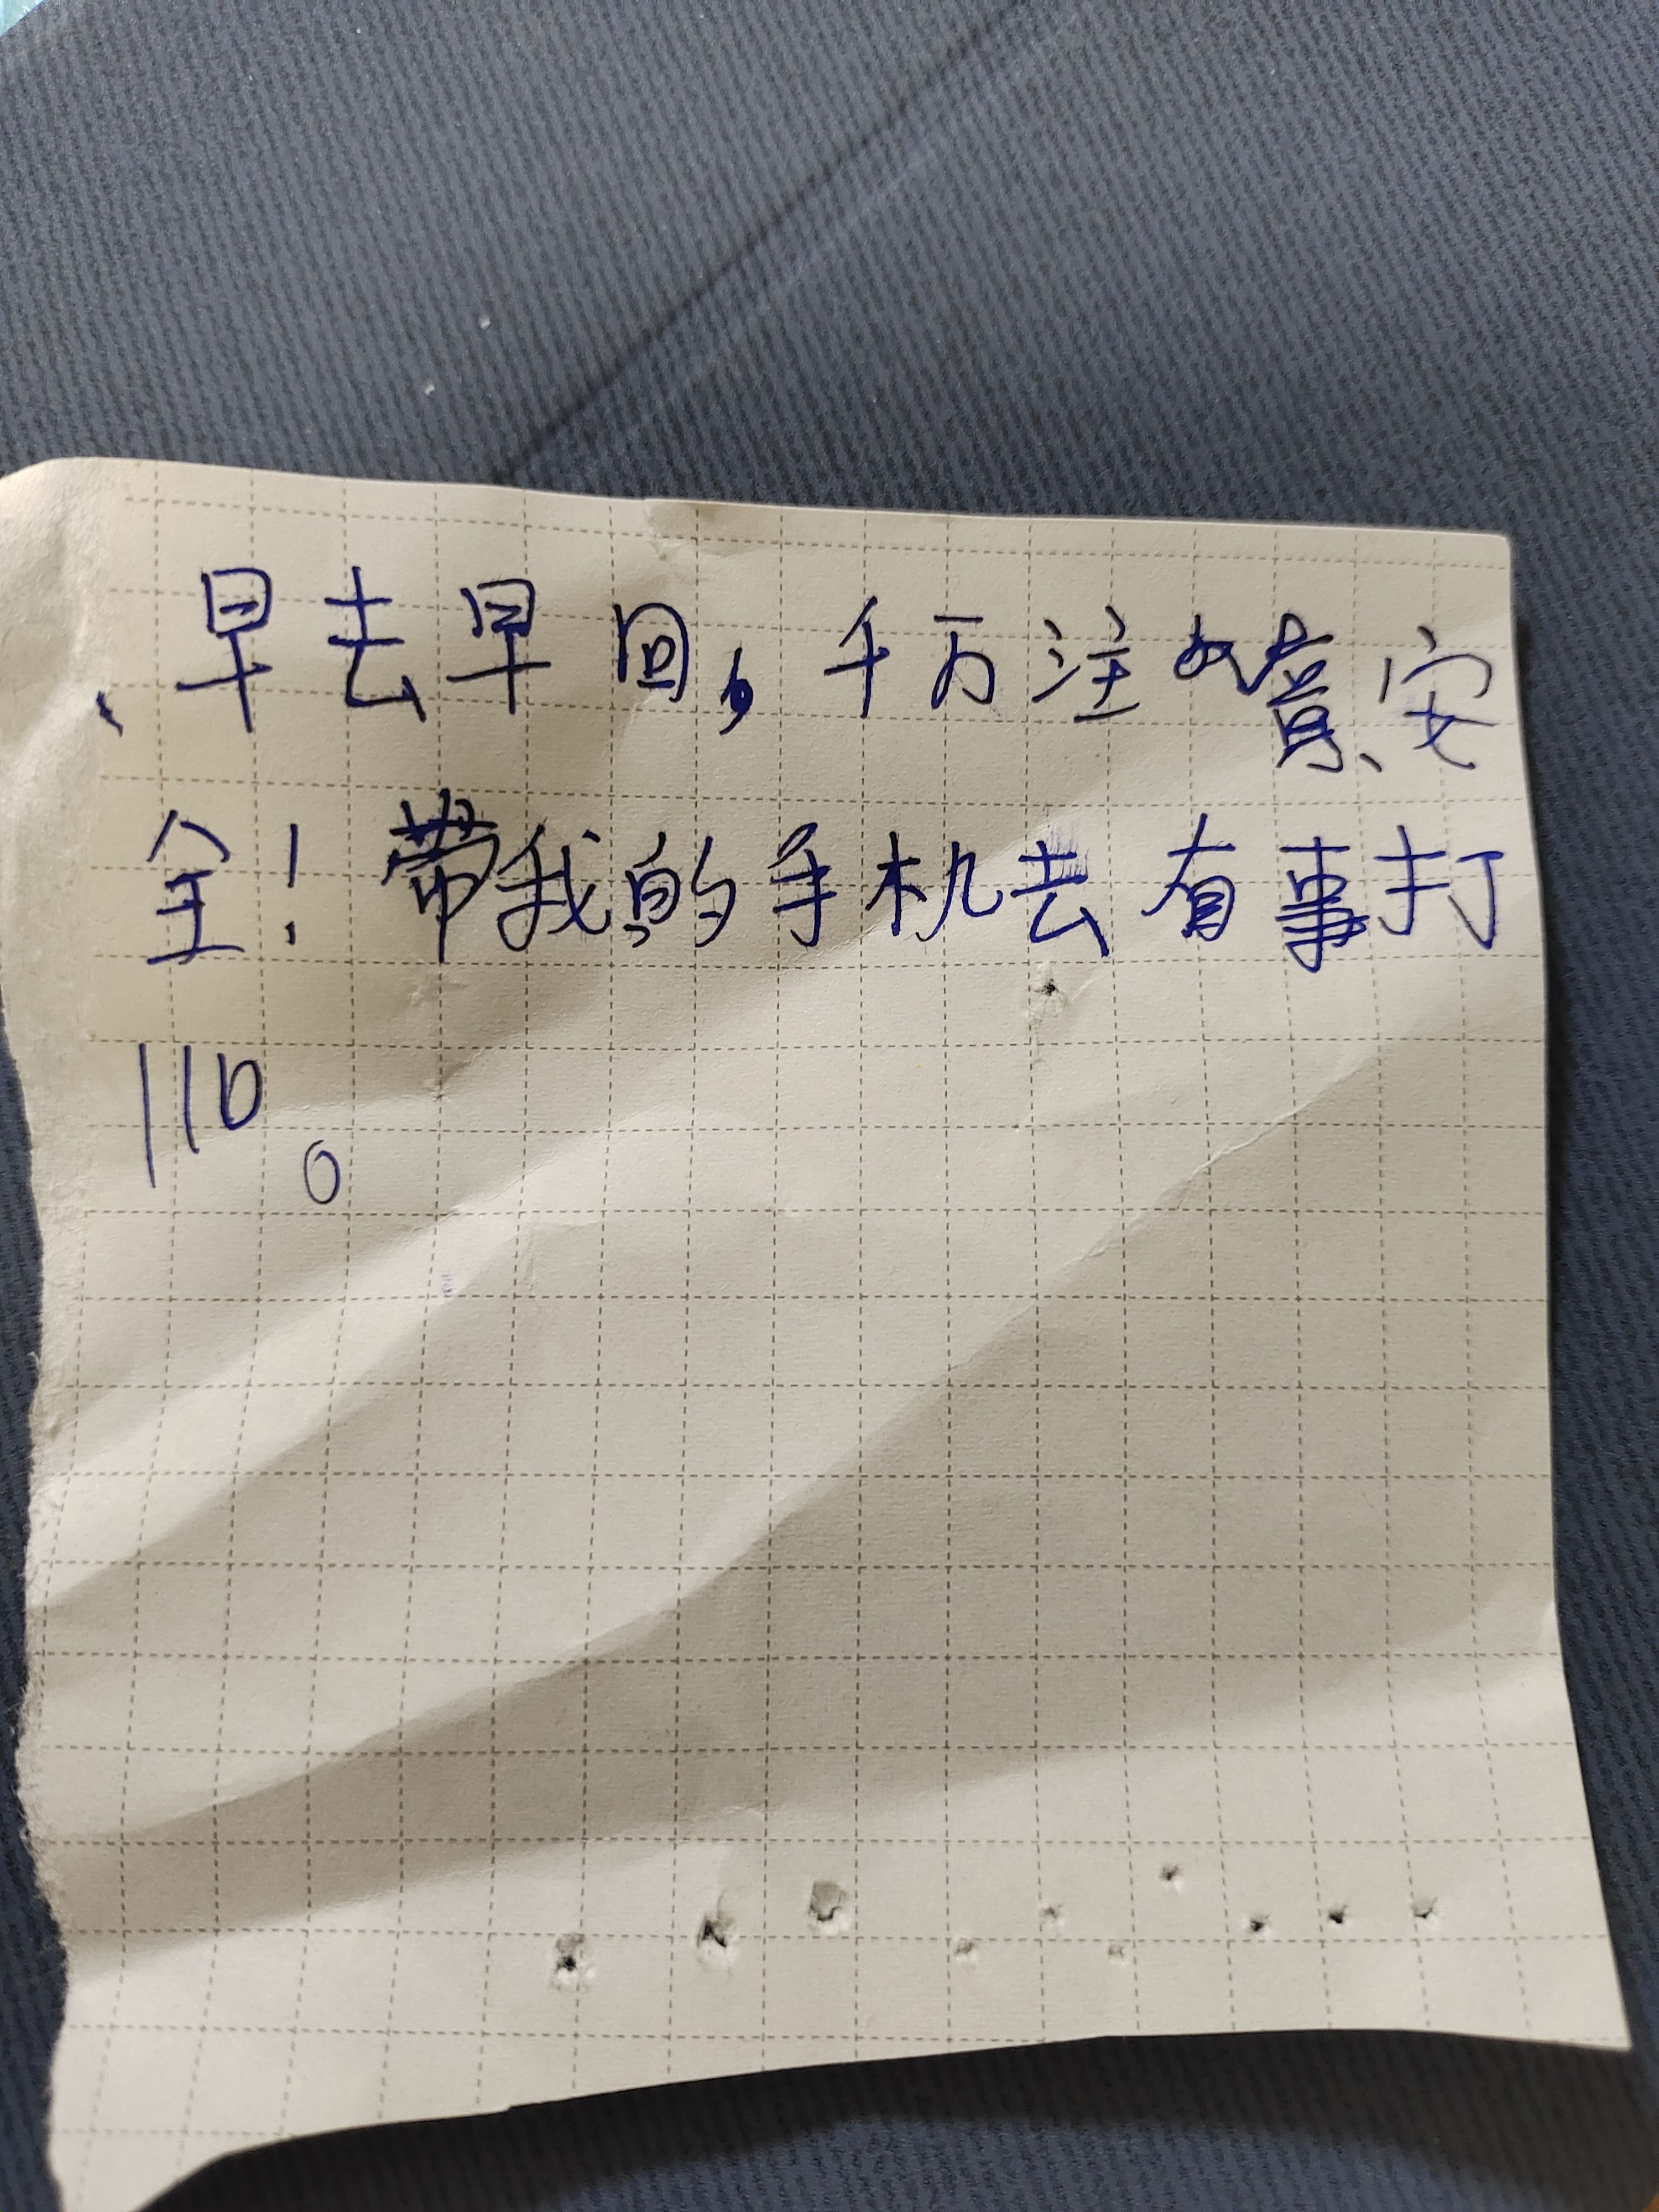 、早去早回，千万注意安
全！带我的手机去有事打
110。